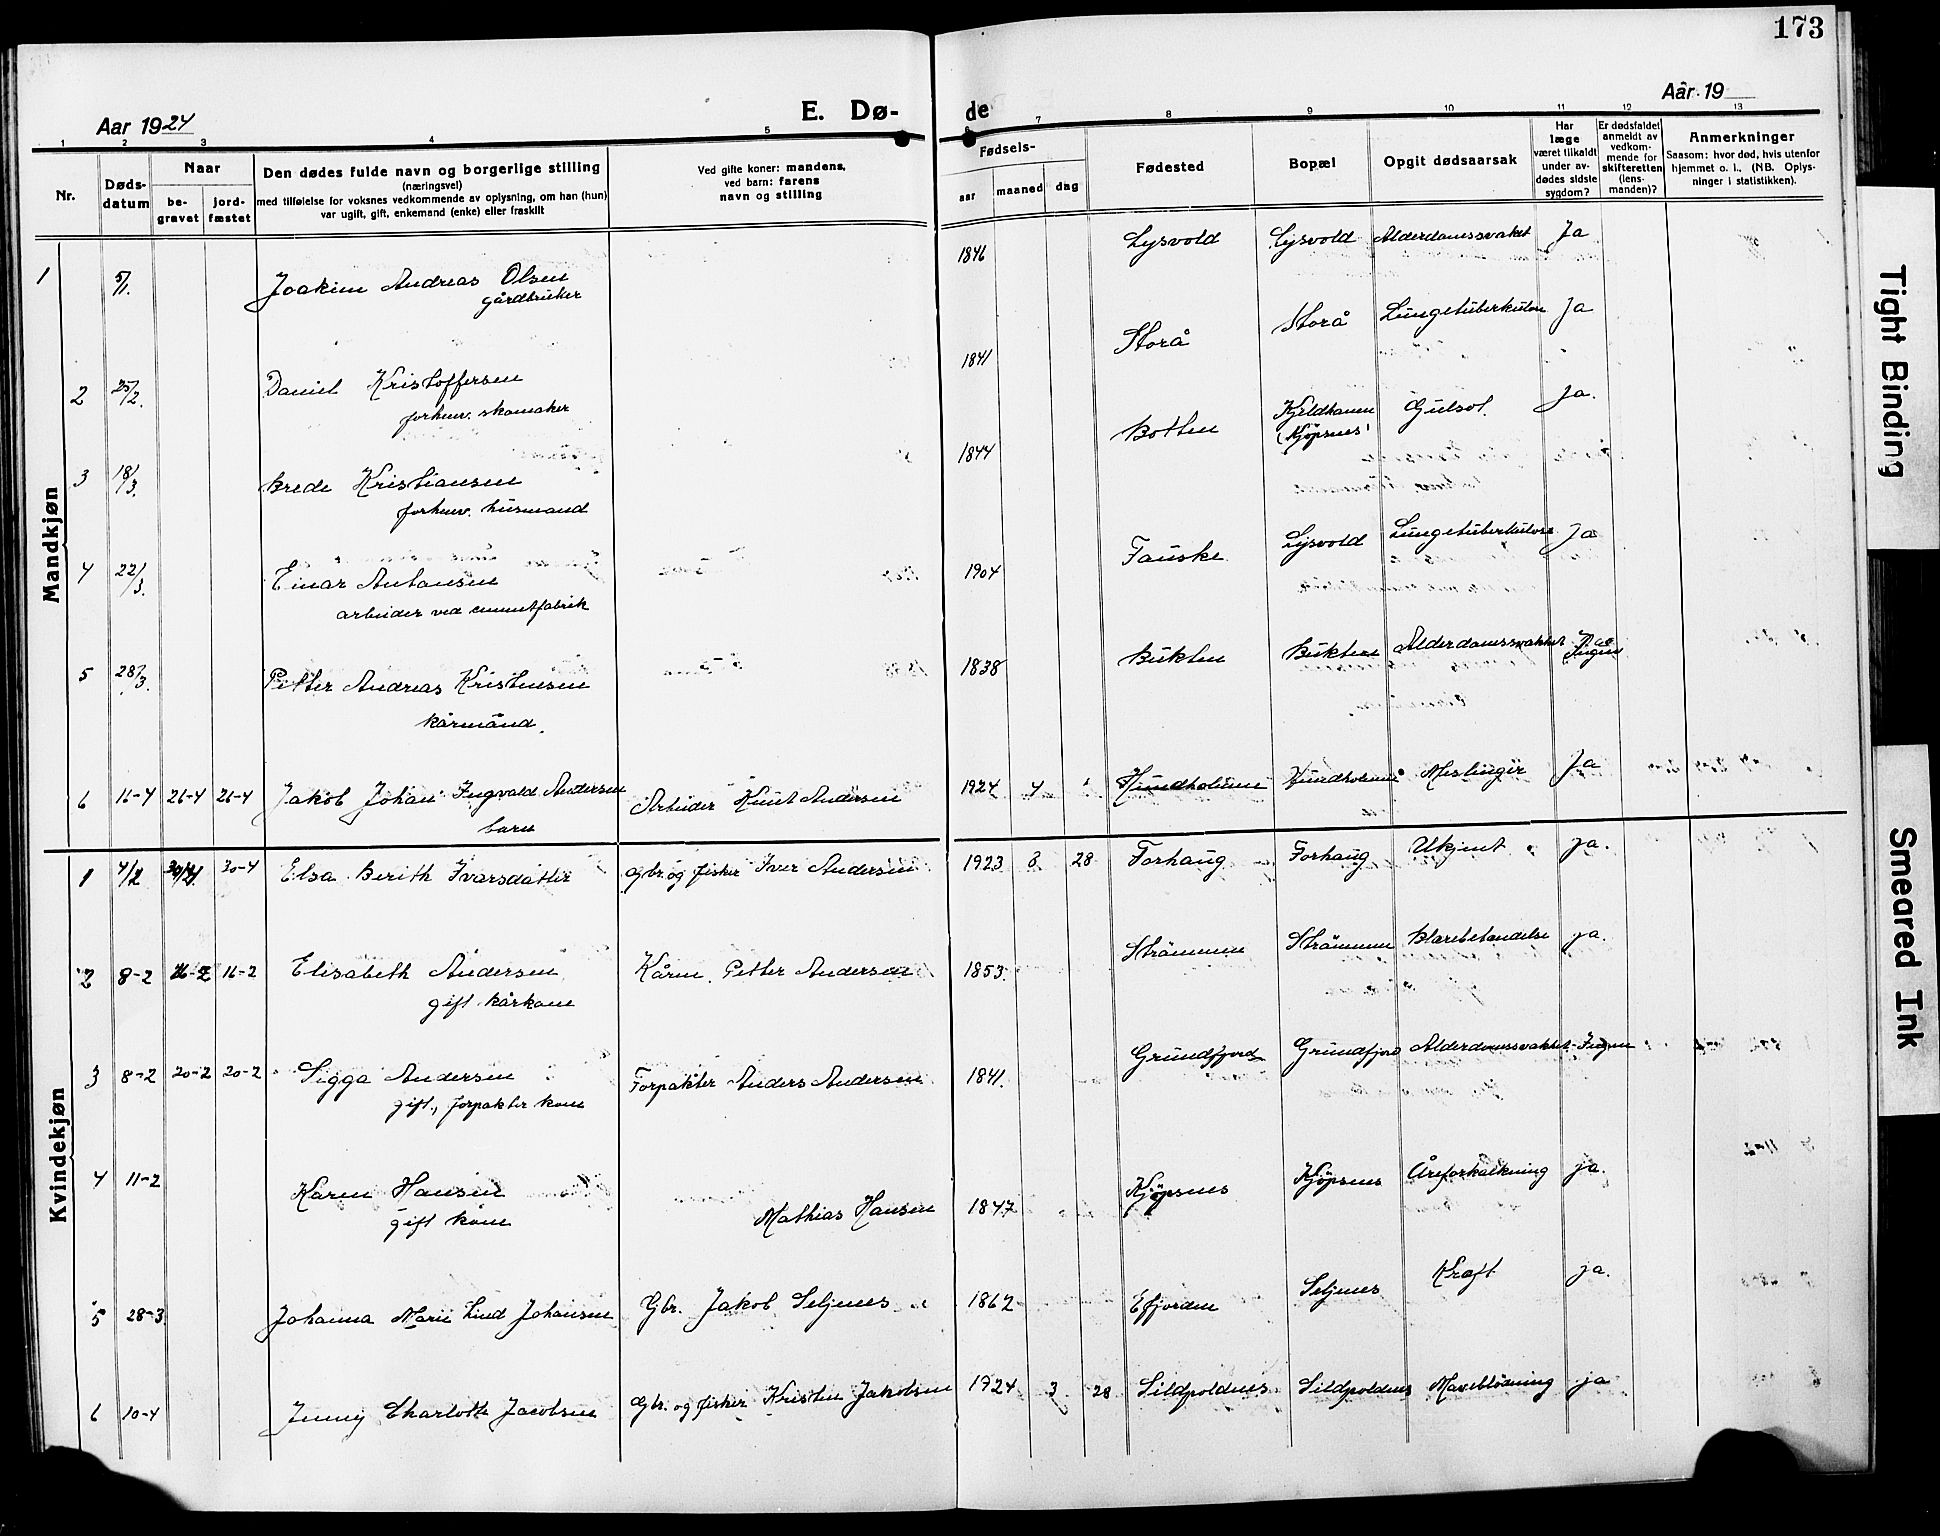 173
Aar 1924
E. Dø-
de
Aar 19
1 2 3 4 5 6 7 8 9 10 11 12 13
Nr.
Døds-
datum
Naar
be-
gravet
jord-
fæstet
Den dødes fulde navn og borgerlige stilling
(næringsvei)
med tilføielse for voksnes vedkommende av oplysning, om han (hun)
var ugift, gift, enkemand (enke) eller fraskilt
Ved gifte koner: mandens,
ved barn: farens
navn og stilling
Fødsels-
aar maaned dag
Fødested
Bopæl
Opgit dødsaarsak
Har
læge
været tilkaldt
under av-
dødes sidste
sygdom?
Er dødsfaldet
anmeldt av
vedkom-
mende for
skifteretten
(lens-
manden)?
Anmerkninger
Saasom: hvor død, hvis utenfor
hjemmet o. l., (NB. Oplys-
ninger i statistikken).
Mandkjøn
1 5/1. Joakim Andreas Olsen 1846 Lysvold Lysvold Alderdomssvakhet Ja
gårdbruker
2 25/2. Daniel Kristoffersen 1841 Storå Storå Lungetuberkulose Ja
forhenv. skomaker
3 18/3. Brede Kristiansen 1844 Botten Kjeldhaven Gulsot. Ja.
(Kjøpsnes)
forhenv. husmand
4 22/3. Einar Antonsen 1904 Fauske Lysvold Lungetuberkulose Ja
arbeider ved cementfabrik
5 28/3. Petter Andreas Kristensen 1838 Bukten Bukten Alderdomssvakhet Ingen
kårmånd.
6 16-4 26-4 26-4 Jakob Johan Ingvald Andersen Arbeider Knut Andersen 1924 4 Hundholmen Hundholmen Meslinger Ja
barn
Kvindekjøn
1 4/2 30/4 30-4 Elsa Berith Ivarsdatter Gbr. og fisker Iver Andersen 1923 8 28 Forhaug Forhaug Ukjent ja.
2 8-2 16-2 16-2 Elisabeth Andersen Kårm. Petter Andersen 1853 Strömmen Strömmen Blærebetændelse ja.
gift kårkone
3 8-2 20-2 20-2 Sigga Andersen Forpakter Anders Andersen 1841. Grundfjord Grundfjord Alderdomssvakhet Ingen
gift, forpakter kone
4 11-2 Karen Hansen Mathias Hansen 1847 Kjøpsnes Kjøpsnes Åreforkalkning ja.
gift kone
5 28-3 Johanna Marie Lind Johansen Gbr. Jakob Seljenes 1862 Efjorden Seljenes Kræft ja.
6 10-4 Jenny Charlotte Jacobsen Gbr. og fisker Kristen Jakobsen 1924 3 28 Sildpoldnes Sildpoldnes Maveblödning ja
Tight Binding
Smeared Ink